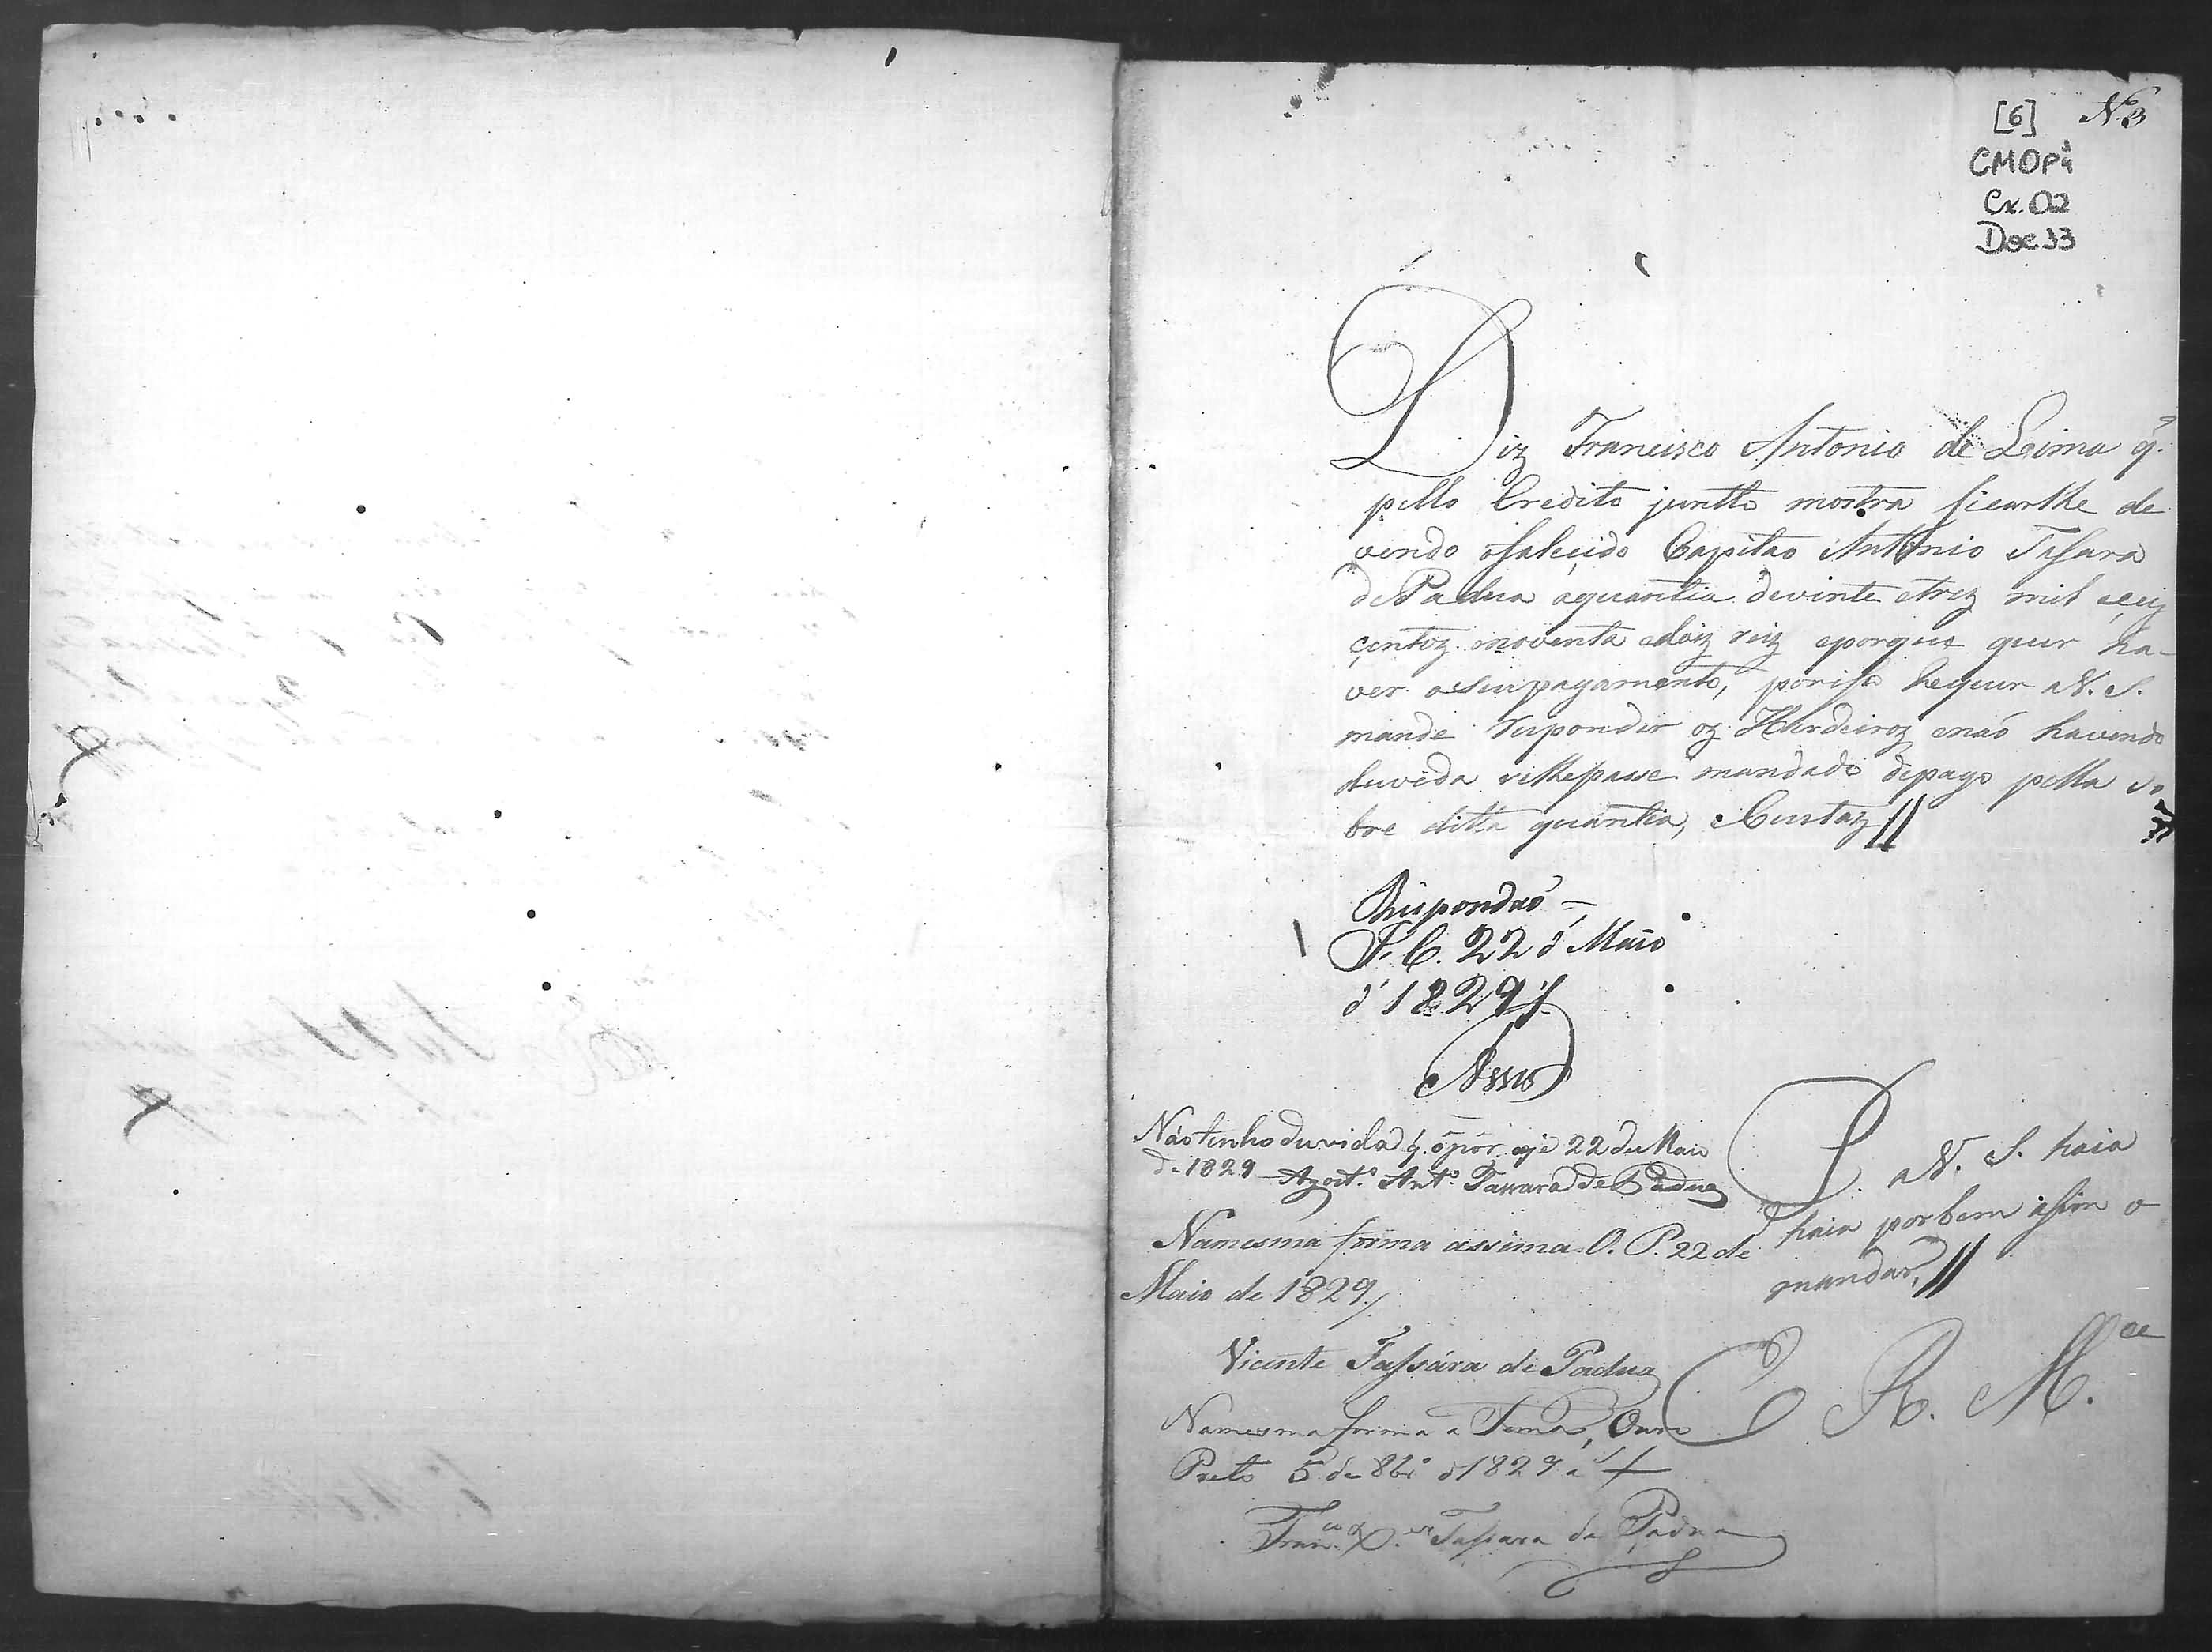 [6] N.3
CMOP
Cx. 02
Doc 33
Diz Francisco Antonio de Leima q.
pello Credito juntto mostra ficarlhe de
vendo ofalecido Capitao Antonio Tasara
de Padua aquantia devinte etrez mil ceiz
centoz noventa edoiz reiz eporque quer ha-
ver oseu pagamento, poriso Requer aV. S.
mande responder oz Herdeiroz enaó havendo
duvida selhepasse mandado depago pella so
bre ditta quantia, eCustaz //
Respondaó =
I. C. 22 d' Maio
d' 1829
Não tenho duvida q. opór oje 22 de Maio
de 1829 Agost.º Ant.º Tassara de Padua
P. aV. S. haia
haia porbem asim o
mandar, //
Namesma forma assima. O. P. 22 de
Maio de 1829 /
Vicente Tassára de Padua
E R. M.ce
Namesma forma a Sima, Ouro
Preto 5 de 8br.º d 1829 a
Fran.co X.er Tassara de Padua